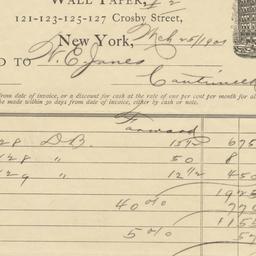 WALL PAPER,
121-123-125-127 Crosby Street,
New York, Mch 25/190
D TO W. E. Jones
from date of invoice, or a discount for cash at the rate of one per cent per month for al
be made within 30 days from date of invoice, either by cash or note.
Forward
128 D.B. 13 1/2 675
128 " 50 8
129 " 12 1/2 450
1925
40 % 770
1155
5 % 57